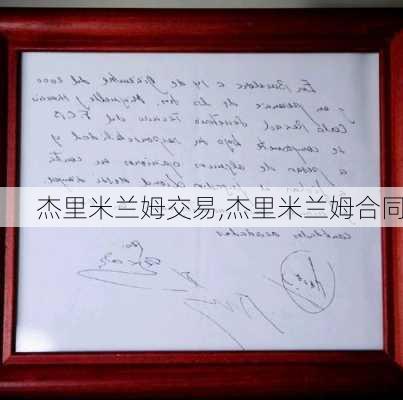 En Barcelona a 14 de Diciembre del 2000
y en presencia de los Srs. Minguella y Horacio
Carles Rexach Secretario Técnico del F.C.B
se compromete bajo su responsabilidad y
a pesar de algunas opiniones en contra
杰里米兰姆交易,杰里米兰姆合同
cantidades acordadas